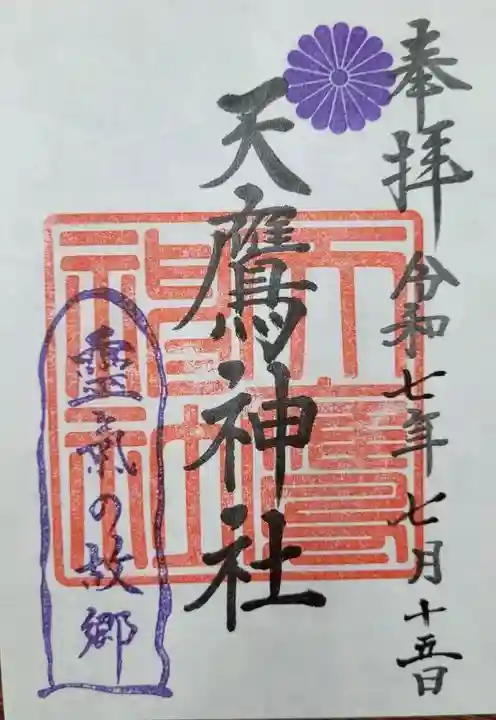 奉拝
令和七年七月十五日
天鷹神社
天鷹神社
靈氣の故郷